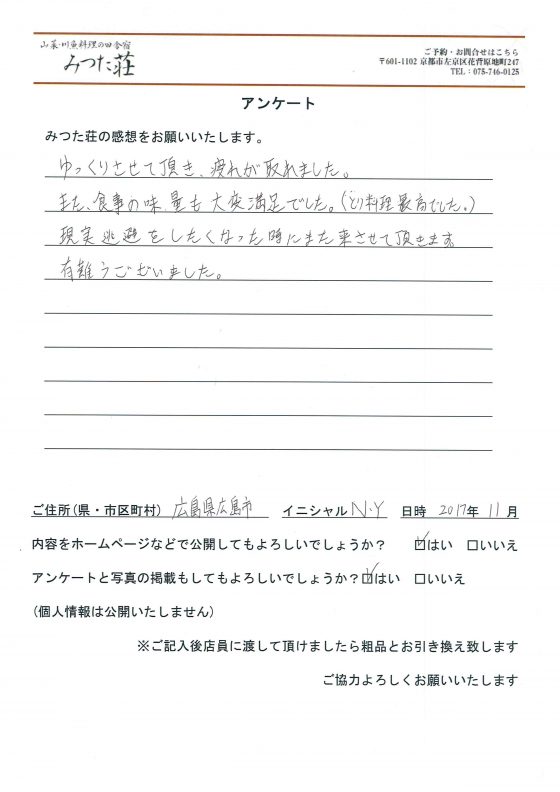 山菜・川魚料理の田舎宿
みつた荘
ご予約・お問合せはこちら
〒601-1102 京都市左京区花背原地町247
TEL：075-746-0125
アンケート
みつた荘の感想をお願いいたします。
ゆっくりさせて頂き、疲れが取れました。
また、食事の味、量も大変満足でした。（とり料理最高でした。）
現実逃避をしたくなった時にまた来させて頂きます
有難うございました。
ご住所(県・市区町村) 広島県広島市 イニシャル N・Y 日時 2017年 11月
内容をホームページなどで公開してもよろしいでしょうか？ ☑はい □いいえ
アンケートと写真の掲載もしてもよろしいでしょうか？☑はい □いいえ
(個人情報は公開いたしません)
※ご記入後店員に渡して頂けましたら粗品とお引き換え致します
ご協力よろしくお願いいたします